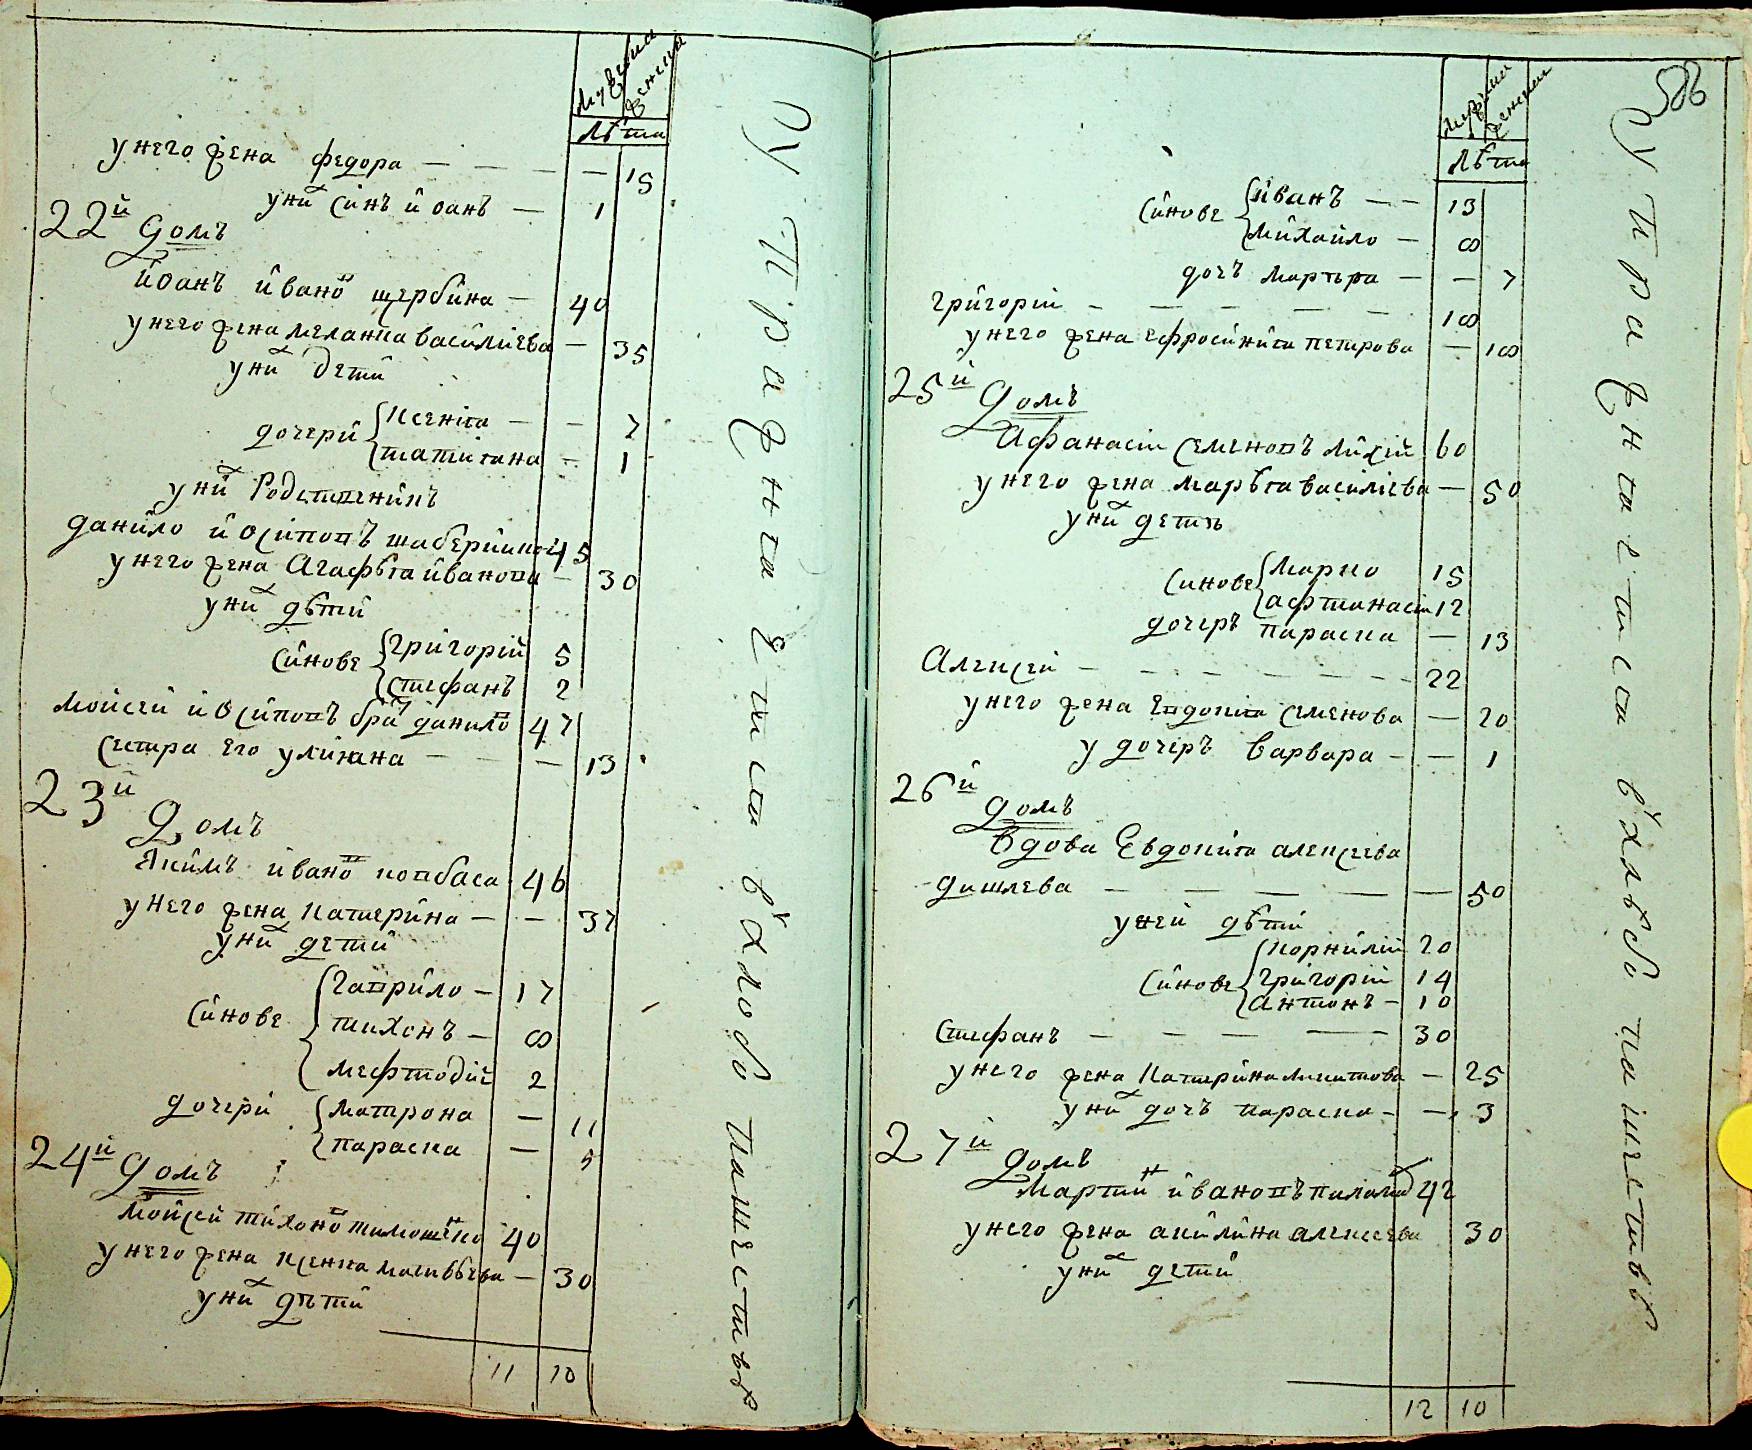 мужеска женска
лѣта
у него жена федора — — — — 15
у них син иоанъ — 1
22й домъ
иоанъ иванов щербина — 40
у него жена меланиа василиева — 35
у них дети
дочери ксениа — — 7
татиана — 1
у них родственикъ
данило иосиповъ 45
у него жена агафиа иванова — 30
у них дѣти
синове григорий 5
стефанъ 2
моисей иосиповъ брат данилов 47
сестра его улияна — — — 13
23й
домъ
яким иванов ковбаса 46
у него жена катерина — — 37
у них дети
синове гаврило — 17
тихонъ — 8
мефтодий 2
дочери матрона — 11
параска — 5
24й домъ
моисей тихонов тимошенко 40
у него жена ксениа матвѣева — 30
у них дѣти
11 10
У пражнаетиса в хлѣбопашествѣ
58
мужеска женска
лѣта
синове иванъ — — 13
михайло — 8
дочъ марѳра — — 7
григорий — — — — — 18
у него жена ефросиния петрова — 18
25й
домъ
афанасии семеновъ лихий 60
у него жена марѳа василиева — 50
у них дети
синове марко 15
афтанасии 12
дочеръ параска — 13
алексей — — — — — — 22
у него жена евдокиа семенова — 20
у дочеръ варвара — — 1
26й
домъ
вдова евдокиа алексеева
дишлева — — — — — 50
у ней дѣти
синове корнилий 20
григорий 14
антонъ — 10
стефанъ — — — — 30
у него жена катерина никитова — 25
у них дочъ параска — — 3
27й
домъ
мартин ивановъ 42
у него жена акилина алексеева 30
у них детий
12 10
У пражнаетиса в хлѣбопашествѣ